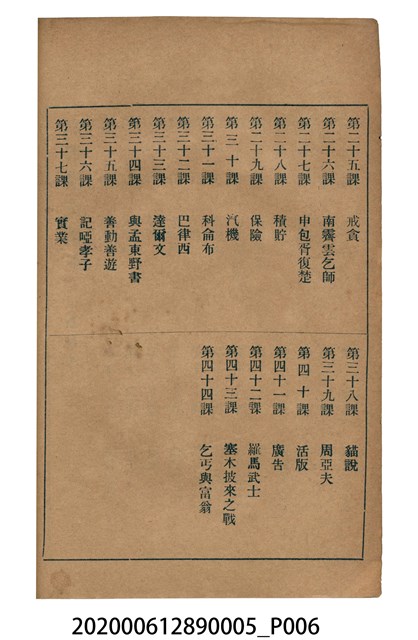 第二十五課 戒貪
第二十六課 南霽雲乞師
第二十七課 申包胥復楚
第二十八課 積貯
第二十九課 保險
第三十課 汽機
第三十一課 科侖布
第三十二課 巴律西
第三十三課 達爾文
第三十四課 與孟東野書
第三十五課 善動善遊
第三十六課 記啞孝子
第三十七課 實業
第三十八課 貓說
第三十九課 周亞夫
第四十課 活版
第四十一課 廣告
第四十二課 羅馬武士
第四十三課 塞木披來之戰
第四十四課 乞丐與富翁
202000612890005_P006